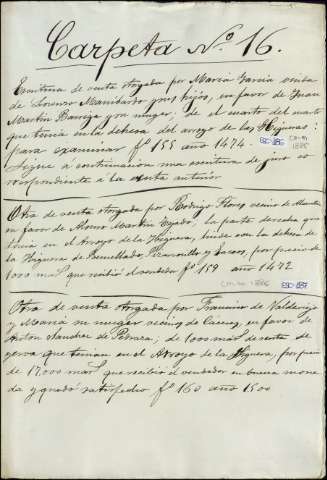 Carpeta Nº 16.
Escritura de venta otorgada por María García viuda
de Lorenzo Manibardo y sus hijos, en favor de Juan
Martín Barriga y su mujer; de el cuarto del cuarto
que tenía en la dehesa del arroyo de las Higueras:
para examinar fº 155 año 1474.
Sigue á continuación una escritura de juro co
rrespondiente á la venta anterior
ESC-186
Otra de venta otorgada por Rodrigo Flores vecino de
en favor de Alonso Martín Tejado, la parte derecha que
tenía en el Arroyo de la Higuera, linde con la dehesa de
la Higuera de y por precio de
1000 mrs que recibió el vendedor fº 159 año 1472
ESC-187
Otra de venta otorgada por Francisco de Valdivieso
y María su mujer vecinos de Cáceres, en favor de
Antón Sánchez de Pedraza; de 1000 mrs de renta de
yerva que tenían en el Arroyo de la Higuera, por precio
de 17000 mrs que recibió el vendedor en buena mone
da y quedó satisfecho fº 160 año 1500